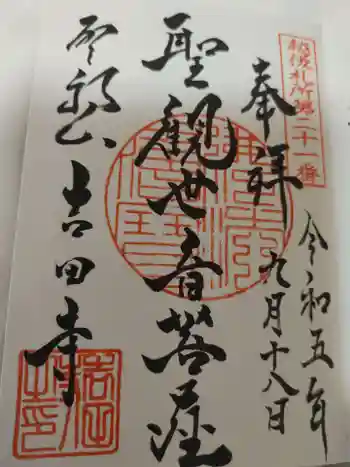 札所第二十一番
奉拝
令和五年
九月十八日
聖観世音菩薩
吉田寺